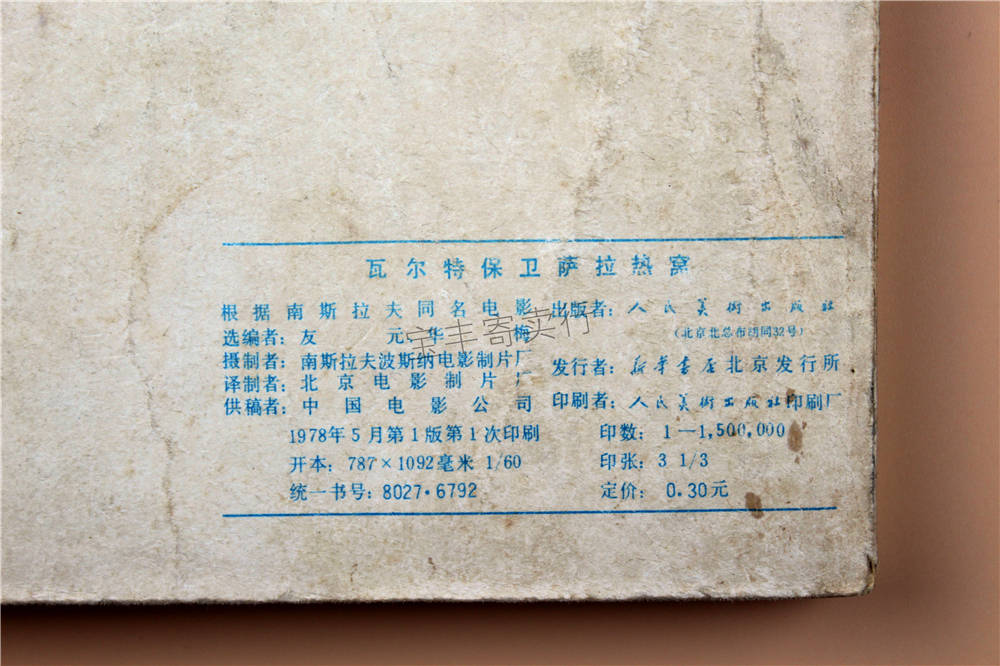 瓦尔特保卫萨拉热窝
根据南斯拉夫同名电影
选编者：友元、华梅
摄制者：南斯拉夫波斯纳电影制片厂
译制者：北京电影制片厂
供稿者：中国电影公司
出版者：人民美術出版社
（北京北总布胡同32号）
发行者：新华書店北京发行所
印刷者：人民美術出版社印刷厂
1978年5月第1版第1次印刷
印数：1—1,500,000
开本：787×1092毫米 1/60
印张：3 1/3
统一书号：8027·6792
定价：0.30元
宝丰寄卖行